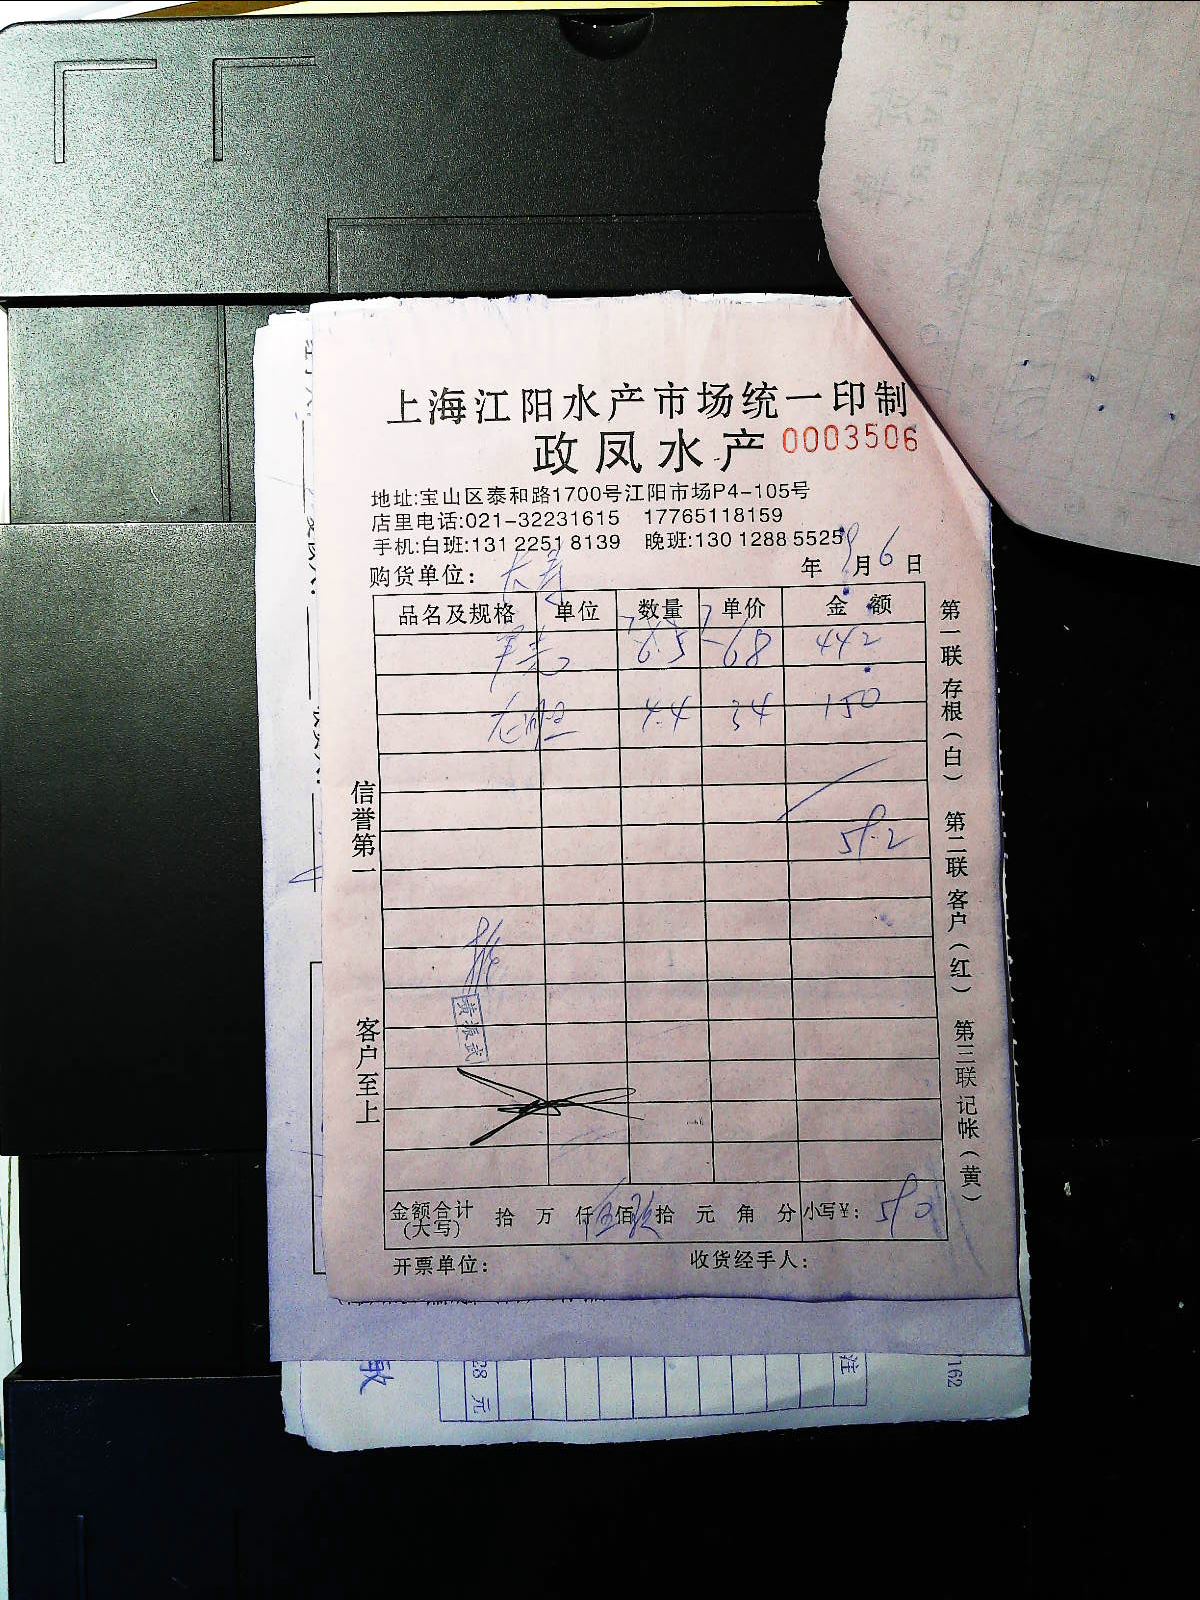 上海江阳水产市场统一印制
政凤水产 0003506
地址:宝山区泰和路1700号江阳市场P4-105号
店里电话:021-32231615 17765118159
手机:白班:131 2251 8139 晚班:130 1288 5525
购货单位: 年 9月 6日
品名及规格 单位 数量 单价 金额
6.5 68 442
4.4 34 150
592
信誉第一
客户至上
黄派武
金额合计(大写) 拾 万 仟 伍佰 玖拾 元 角 分 小写¥: 590
开票单位: 收货经手人:
第一联 存根(白)
第二联 客户(红)
第三联 记帐(黄)
28 元
注
162